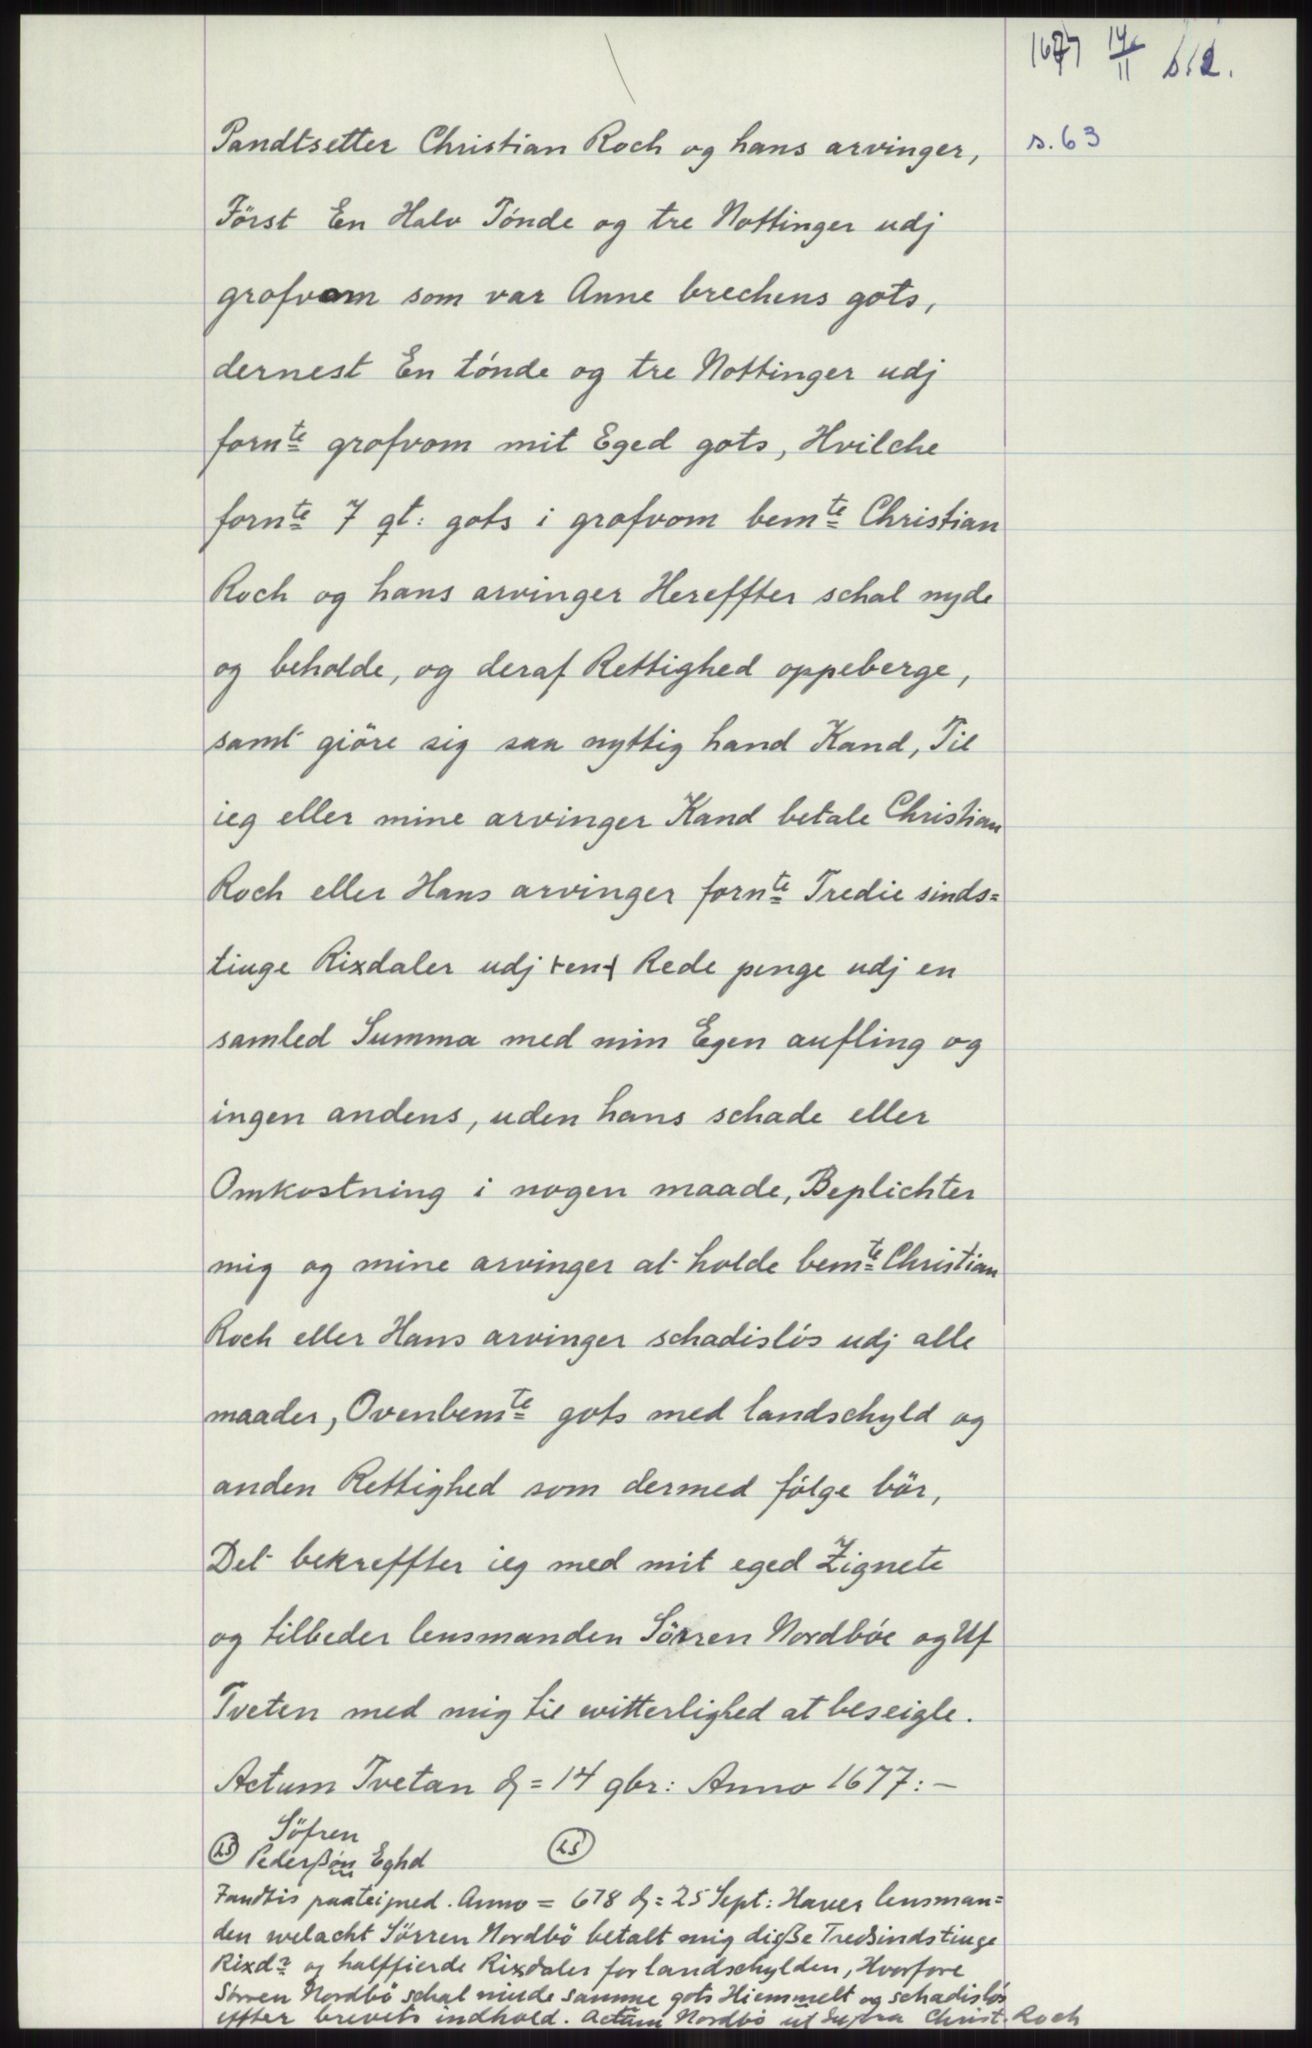 1677 14/11 s/2.
s. 63
Pandtsetter Christian Roch og hans arvinger,
Först En Halv Tónde og tre Nottinger udj
grofvom som var Anne brechens gots,
dernest En tónde og tre Nottinger udj
fornte grofvom mit Eged gots, Hvilche
fornte 7 qt: gots i grofvom bemte Christian
Roch og hans arvinger Hereffter schal nyde
og beholde, og deraf Rettighed oppeberge,
samt giöre sig saa nyttig hand Kand, Til
ieg eller mine arvinger Kand betale Christian
Roch eller Hans arvinger fornte Tredie sinds=
tiuge Rixdaler udj en Rede penge udj en
samled Summa med min Egen aufling og
ingen andens, uden hans schade eller
Omkostning i nogen maade, Beplichter
mig og mine arvinger at holde bemte Christian
Roch eller Hans arvinger schadislós udj alle
maader, Ovenbemte gots med landschyld og
anden Rettighed som dermed fólge bör,
Det bekreffter ieg med mit eged Zignete
og tilbeder lensmanden Sörren Nordbóe og Uf
Tveten med mig til witterlighed at beseigle.
Actum Tvetan d=14 9br: Anno 1677:-
Söfren
LS Pederßön Eghd LS
paateigned. Anno = 678 d= 25 Sept: Haver lensman=
den welacht Sörren Nordbö betalt mig diße Treßindstiuge
Rixdr og halffierde Rixdaler for landschylden, Hvorfore
Sörren Nordbö schal niude samme gots Hiemmelt og schadislós
effter brevets indhold. Actum Nordbö ut Supra Christ. Roch